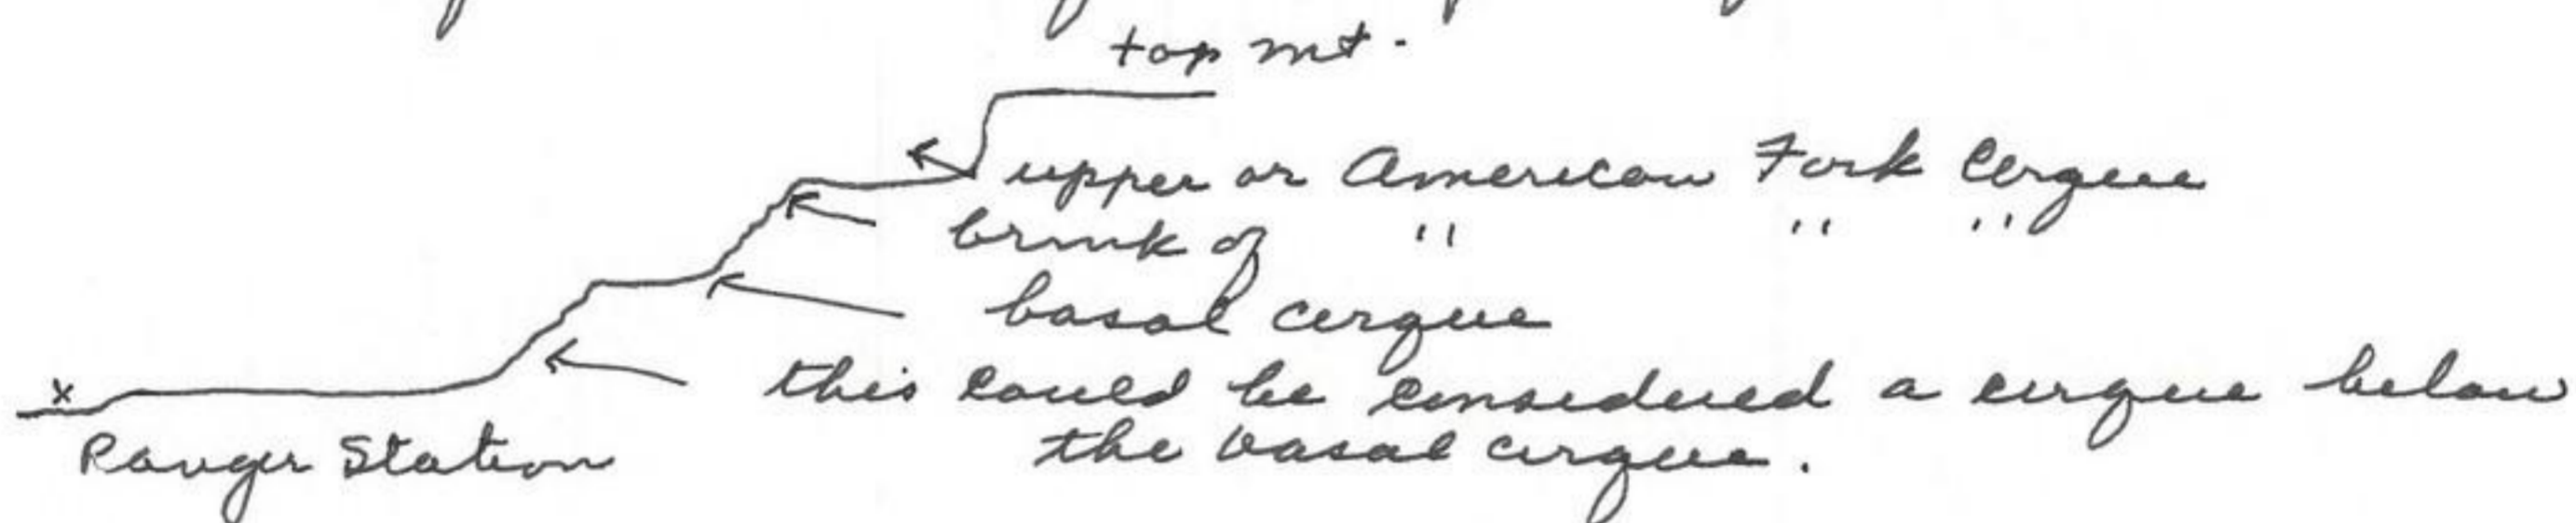 top mt.
upper or American Fork Cirque
brink of " " "
basal cirque
this could be considered a cirque below
the basal cirque.
x
Ranger Station